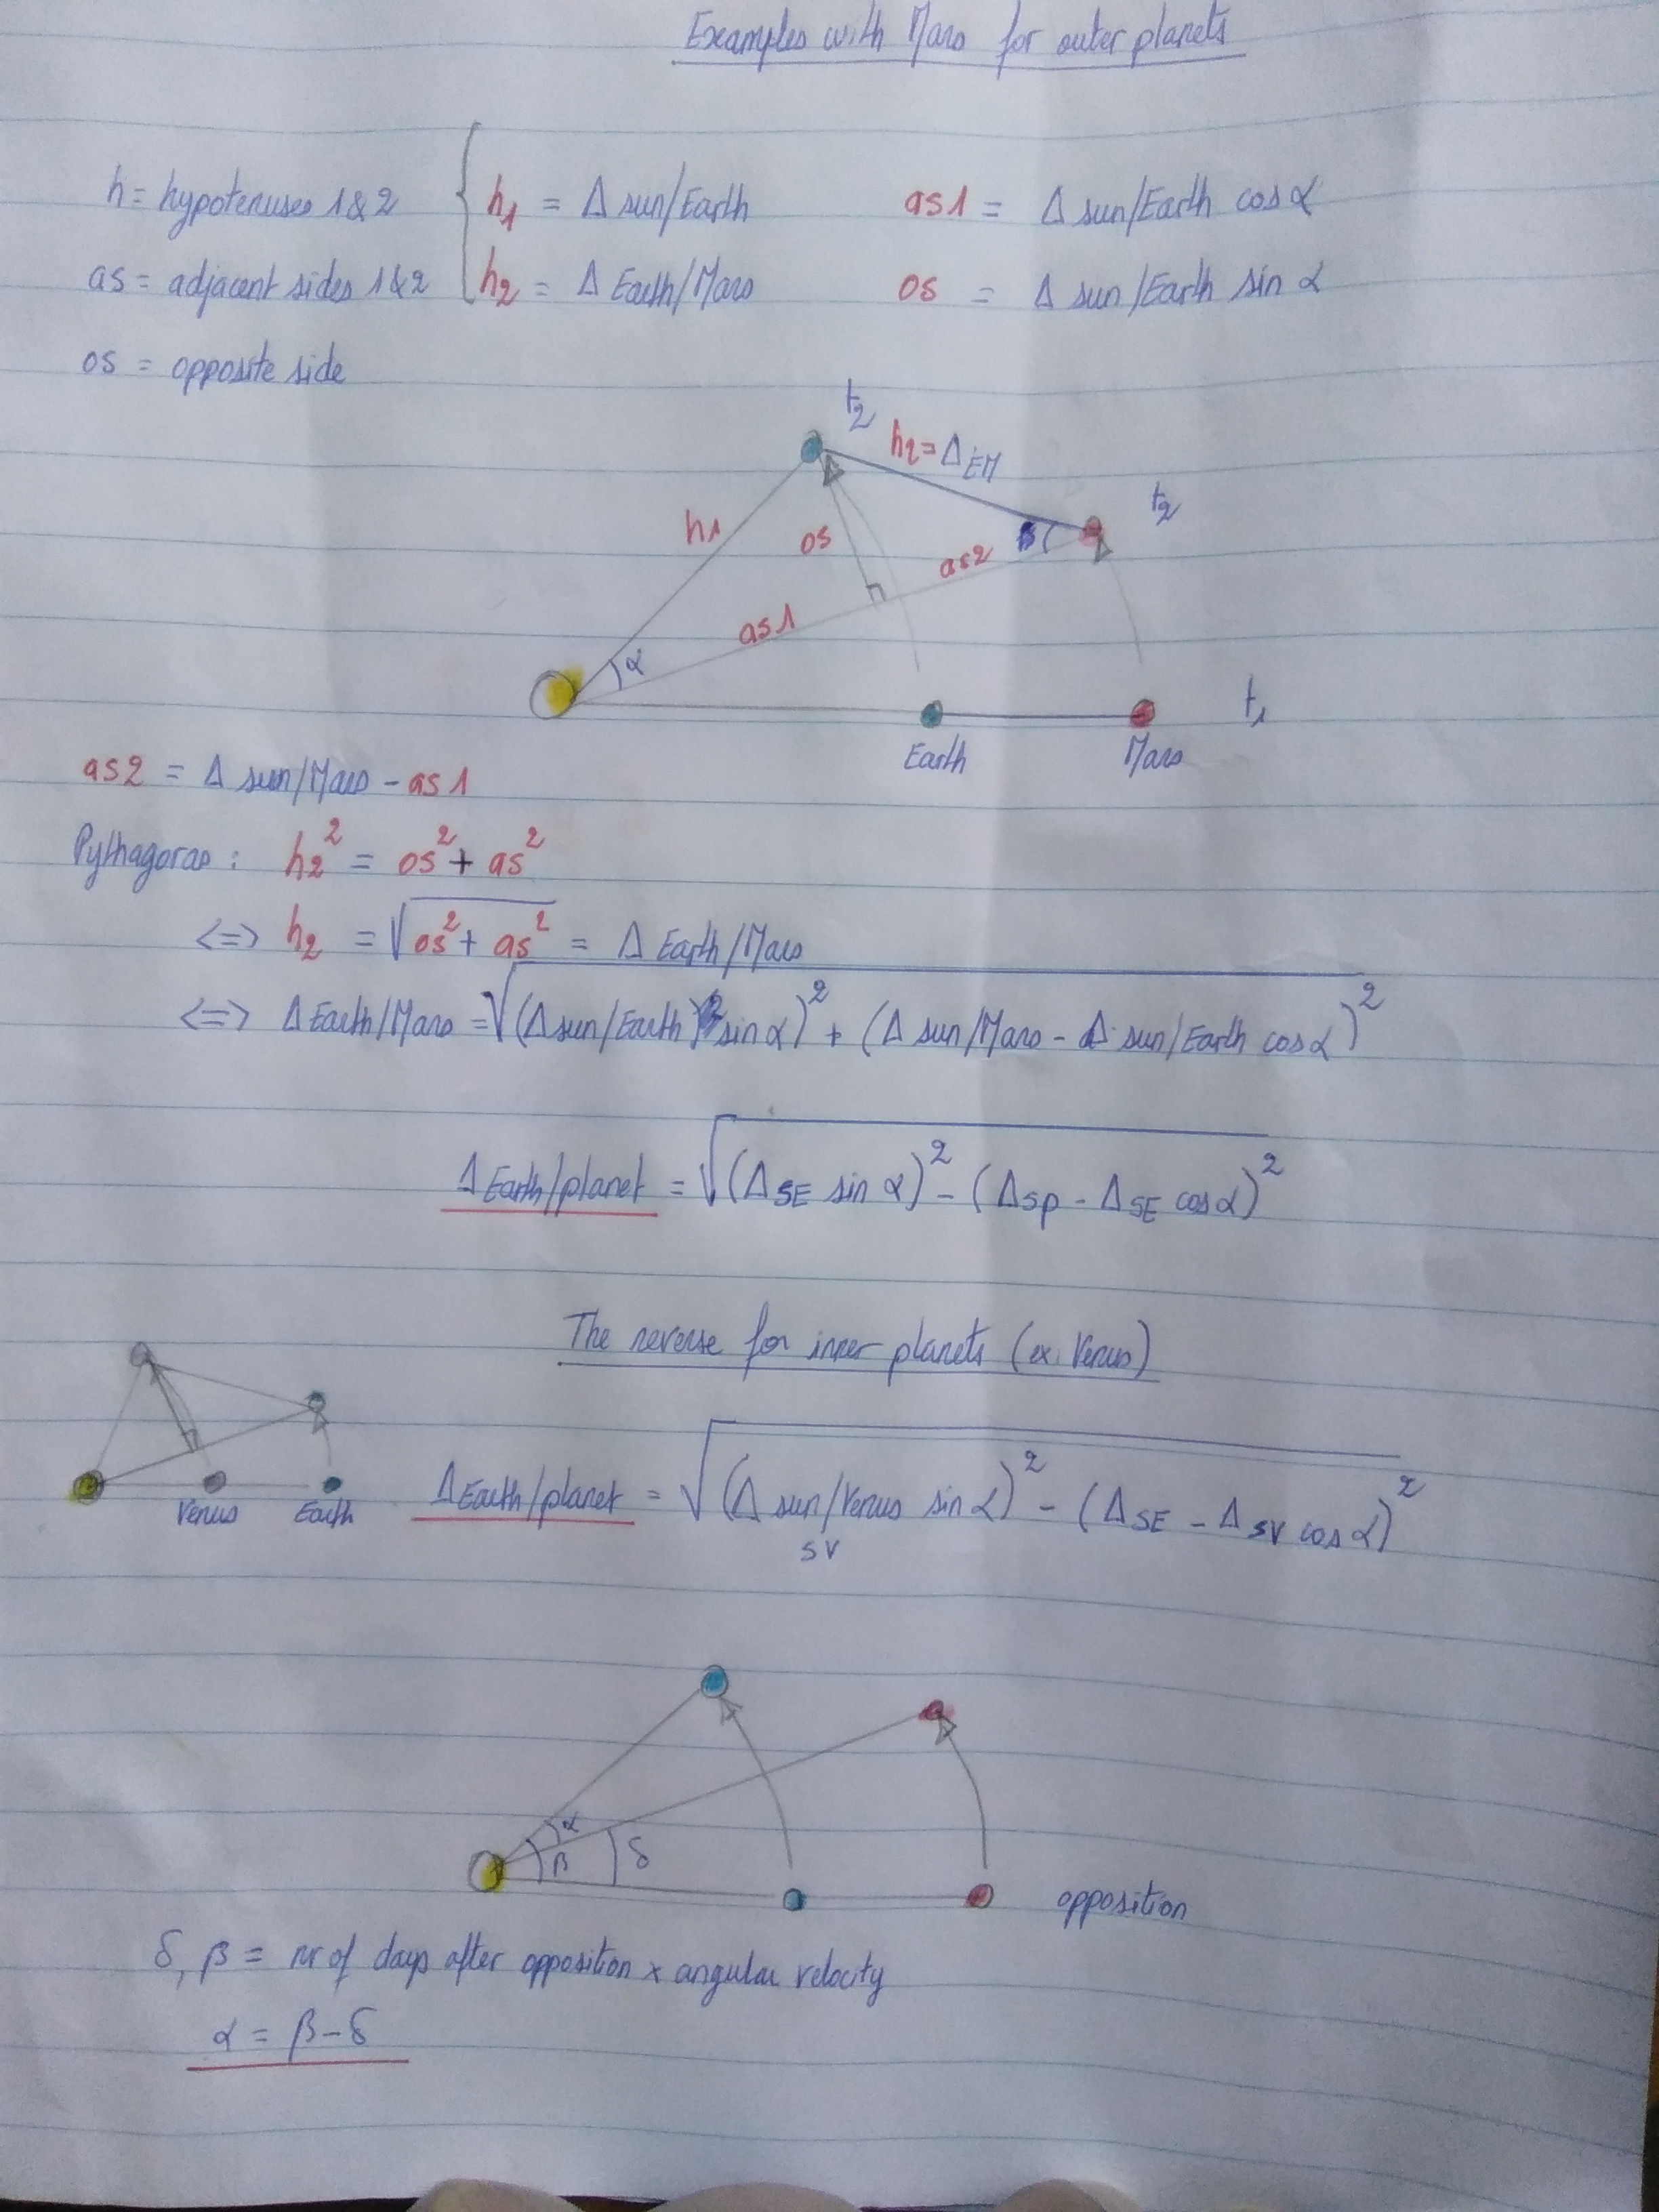 Examples with Mars for outer planets
h = hypotenuses 1&2 { h₁ = Δ sun/Earth as1 = Δ sun/Earth cos α
as = adjacent sides 1&2 h₂ = Δ Earth/Mars os = Δ sun/Earth sin α
os = opposite side
t₂
h₂ = Δ EM
t₂
h1
os
as2
β
as1
α
t₁
Earth Mars
as2 = Δ sun/Mars - as1
Pythagoras : h₂² = os² + as²
<=> h₂ = √(os² + as²) = Δ Earth/Mars
<=> Δ Earth/Mars = √((Δ sun/Earth) sin α)² + (Δ sun/Mars - Δ sun/Earth cos α)²
Δ Earth/planet = √(Δ SE sin α)² - (Δ SP - Δ SE cos α)²
The reverse for inner planets (ex. Venus)
Venus Earth
Δ Earth/planet = √(Δ sun/Venus sin α)² - (Δ SE - Δ SV cos α)²
SV
α
β δ
opposition
δ, β = nr of days after opposition x angular velocity
α = β - δ